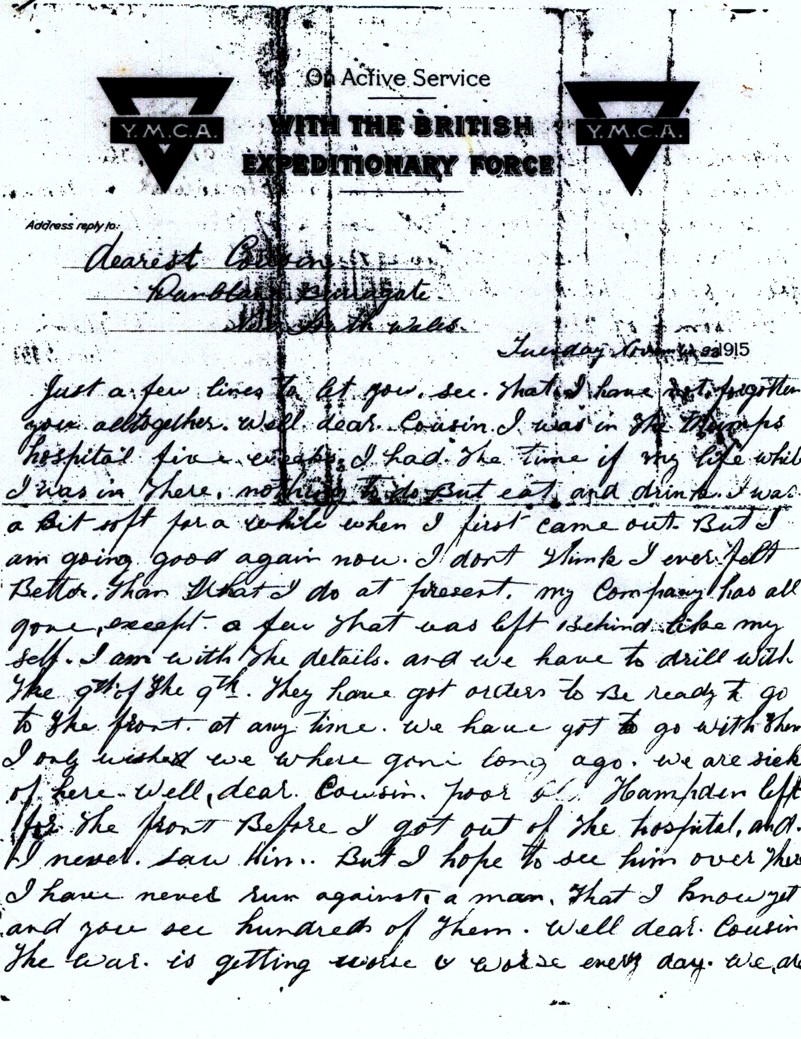 On Active Service
WITH THE BRITISH
EXPEDITIONARY FORCE
Y.M.C.A.
Y.M.C.A.
Address reply to:
dearest Cousin
Burragate
New South Wales.
Tuesday November 1915
Just a few lines to let you. see. that I have not forgotten
you alltogether. Well dear. Cousin. I was in the Mumps
hospital five weeks, I had the time if my life while
I was in there, nothing to do But eat and drink. I was
a Bit soft for a while when I first came out. But I
am going good again now. I dont think I ever felt
Better. than What I do at present. my Company has all
gone, except. a few that was left Behind like my
self. I am with the details. and we have to drill with
the 9th of the 9th. They have got orders to Be ready to go
to the front. at any time. we have got to go with them
I only wished we where gone long ago. we are sick
of here. Well, dear. Cousin. poor Hampden left
for the front Before I got out of the hospital, and.
I never. saw him.. But I hope to see him over there
I have never run against, a man. that I know yet
and you see hundreds of them. Well dear. Cousin
the war. is getting worse & worse every day. we are